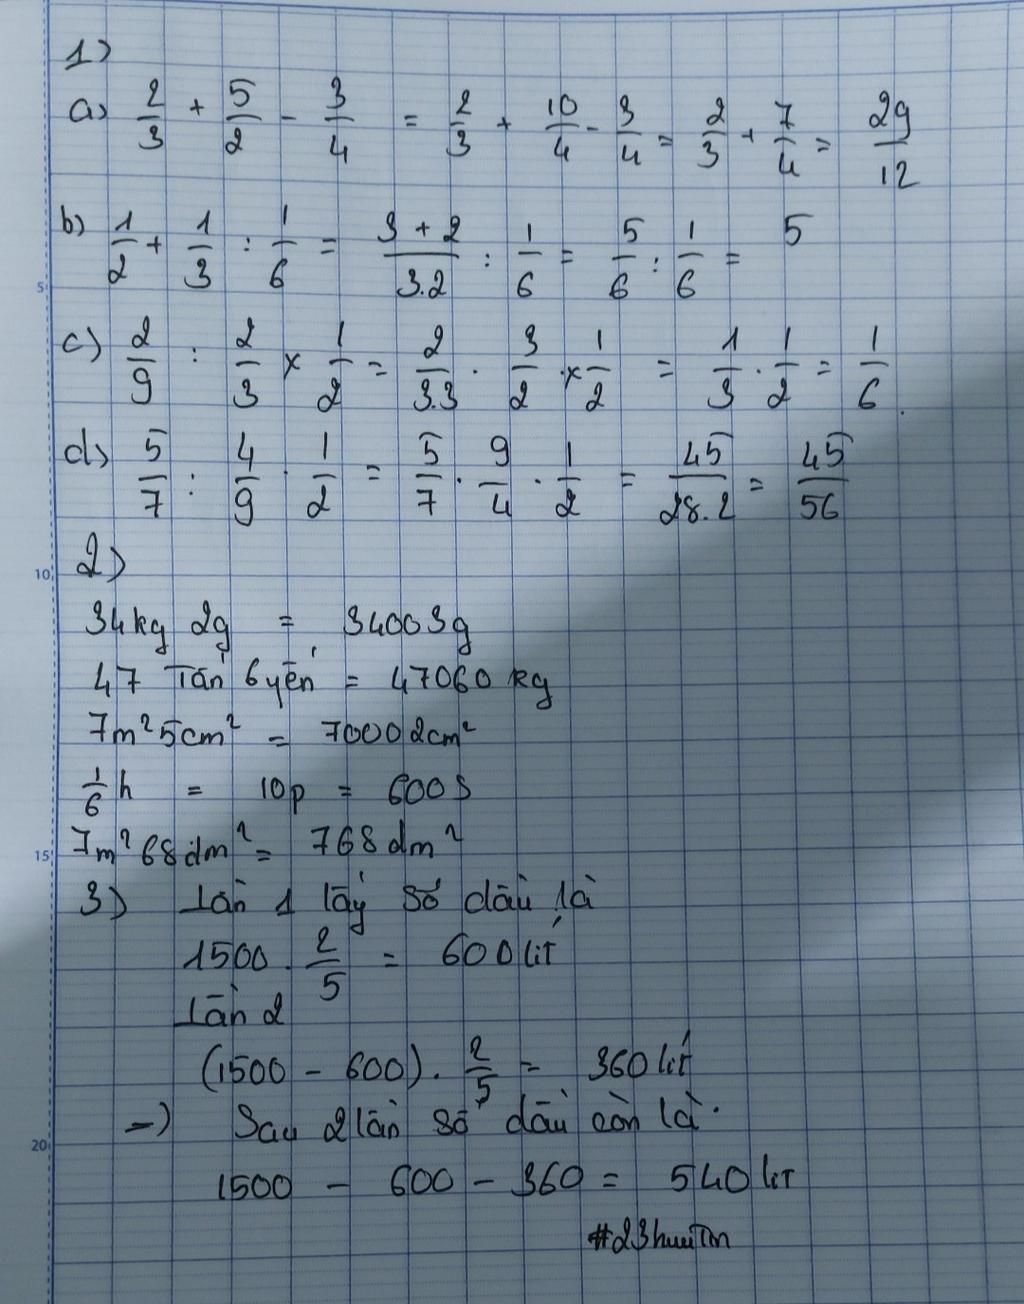 1)
a) 2/3 + 5/2 - 3/4 = 2/3 + 10/4 - 3/4 = 2/3 + 7/4 = 29/12
b) 1/2 + 1/3 : 1/6 = (3 + 2)/(3.2) : 1/6 = 5/6 : 1/6 = 5
c) 2/9 : 2/3 x 1/2 = 2/(3.3) . 3/2 .x 1/2 = 1/3 . 1/2 = 1/6.
d) 5/7 : 4/9 . 1/2 = 5/7 . 9/4 . 1/2 = 45/(28.2) = 45/56
2)
34kg 2g = 34003g
47 Tấn 6yến = 47060 kg
7m² 5cm² = 70002cm²
1/6 h = 10p = 600s
7m² 68dm² = 768dm²
3) Lần 1 lấy số dầu là
1500 . 2/5 = 600 lít
Lần 2
(1500 - 600) . 2/5 = 360 lít
-) Sau 2 lần số dầu còn là.
1500 - 600 - 360 = 540 lít